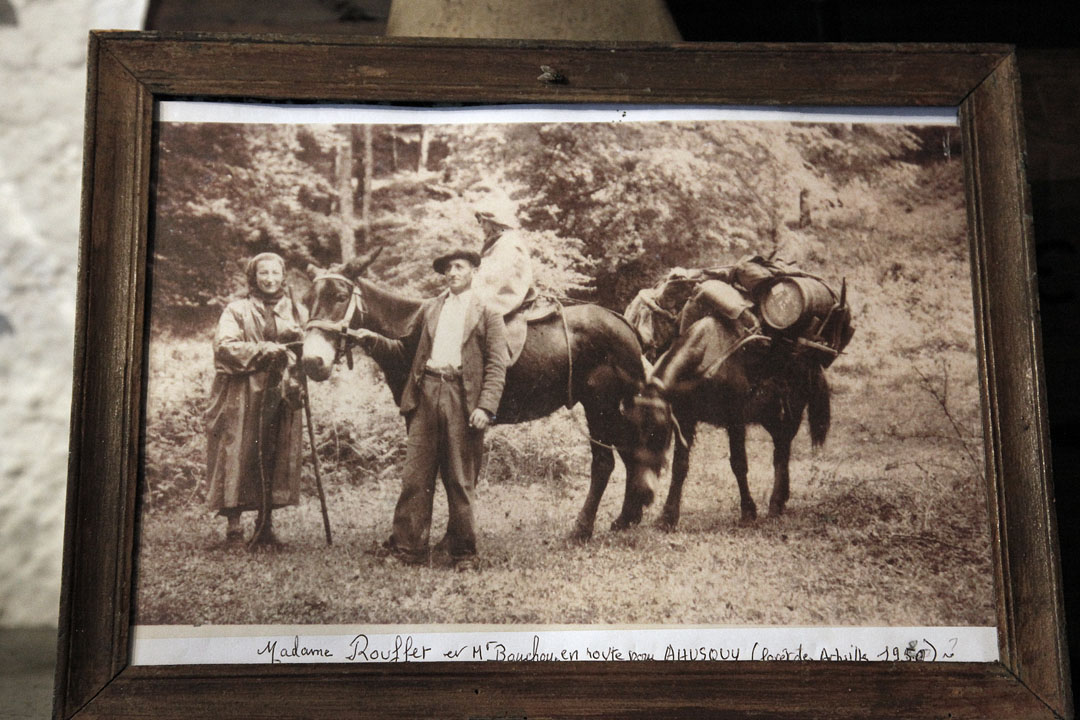 Madame Rouffet et Mr Bauchou, en route pour AHUSQUY (forêt des Arbailles 1950) ?